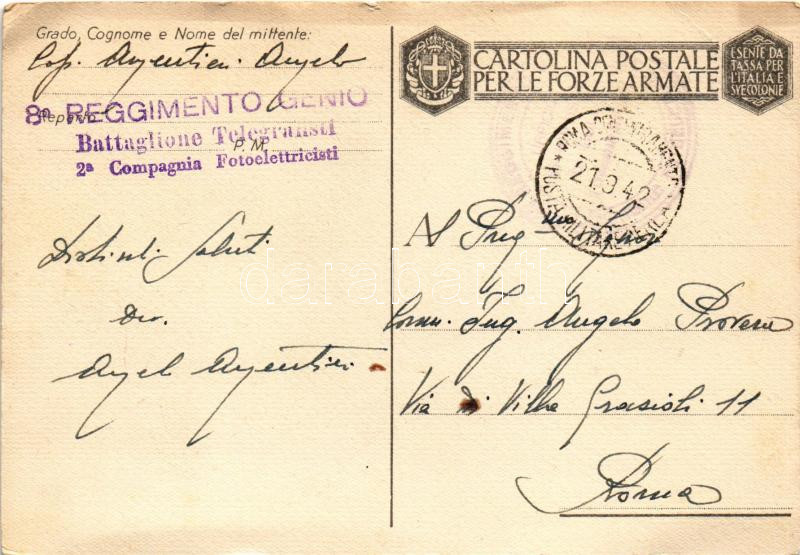 Grado, Cognome e Nome del mittente:
Cap. Argentieri Angelo
Reparto
8º REGGIMENTO GENIO
Battaglione Telegrafisti
P. M.
2ª Compagnia Fotoelettricisti
Distinti Saluti
Dev.
Angelo Argentieri
CARTOLINA POSTALE
PER LE FORZE ARMATE
ESENTE DA
TASSA PER
L'ITALIA E
SVE COLONIE
ROMA
POSTA MILITARE
21.9.42
Al Preg.mo Signor
Comm. Ing. Angelo Provera
Via di Villa Grazioli 11
Roma
darabanth